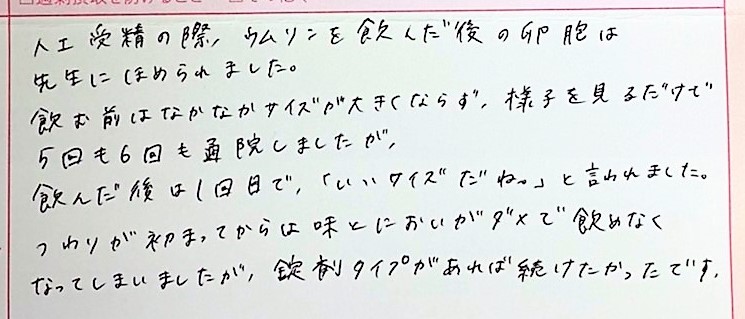 人工受精の際、ウムリンを飲んだ後の卵胞は
先生にほめられました。
飲む前はなかなかサイズが大きくならず、様子を見るだけで
5回も6回も通院しましたが、
飲んだ後は1回目で、「いいサイズだねっ」と言われました。
つわりが初まってからは味とにおいがダメで飲めなく
なってしまいましたが、錠剤タイプがあれば続けたかったです。